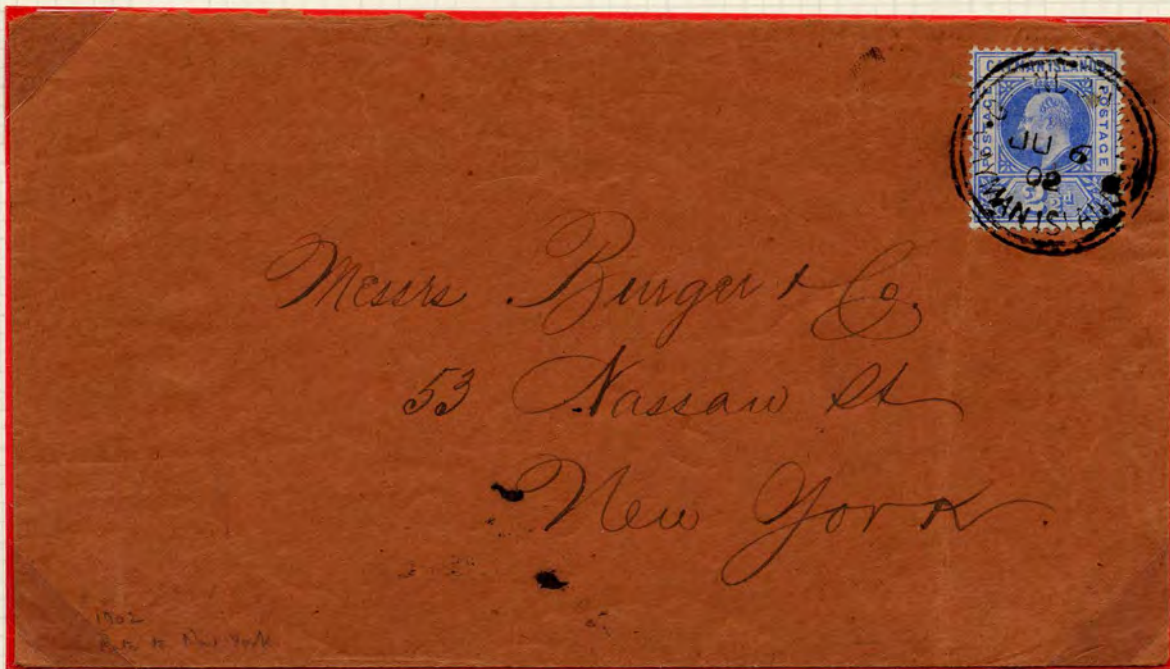 CAYMAN ISLANDS
POSTAGE POSTAGE
2½d
JU 6
02
CAYMAN ISLANDS
Messrs Burger & Co.
53 Nassau St
New York
1902
Rate to New York